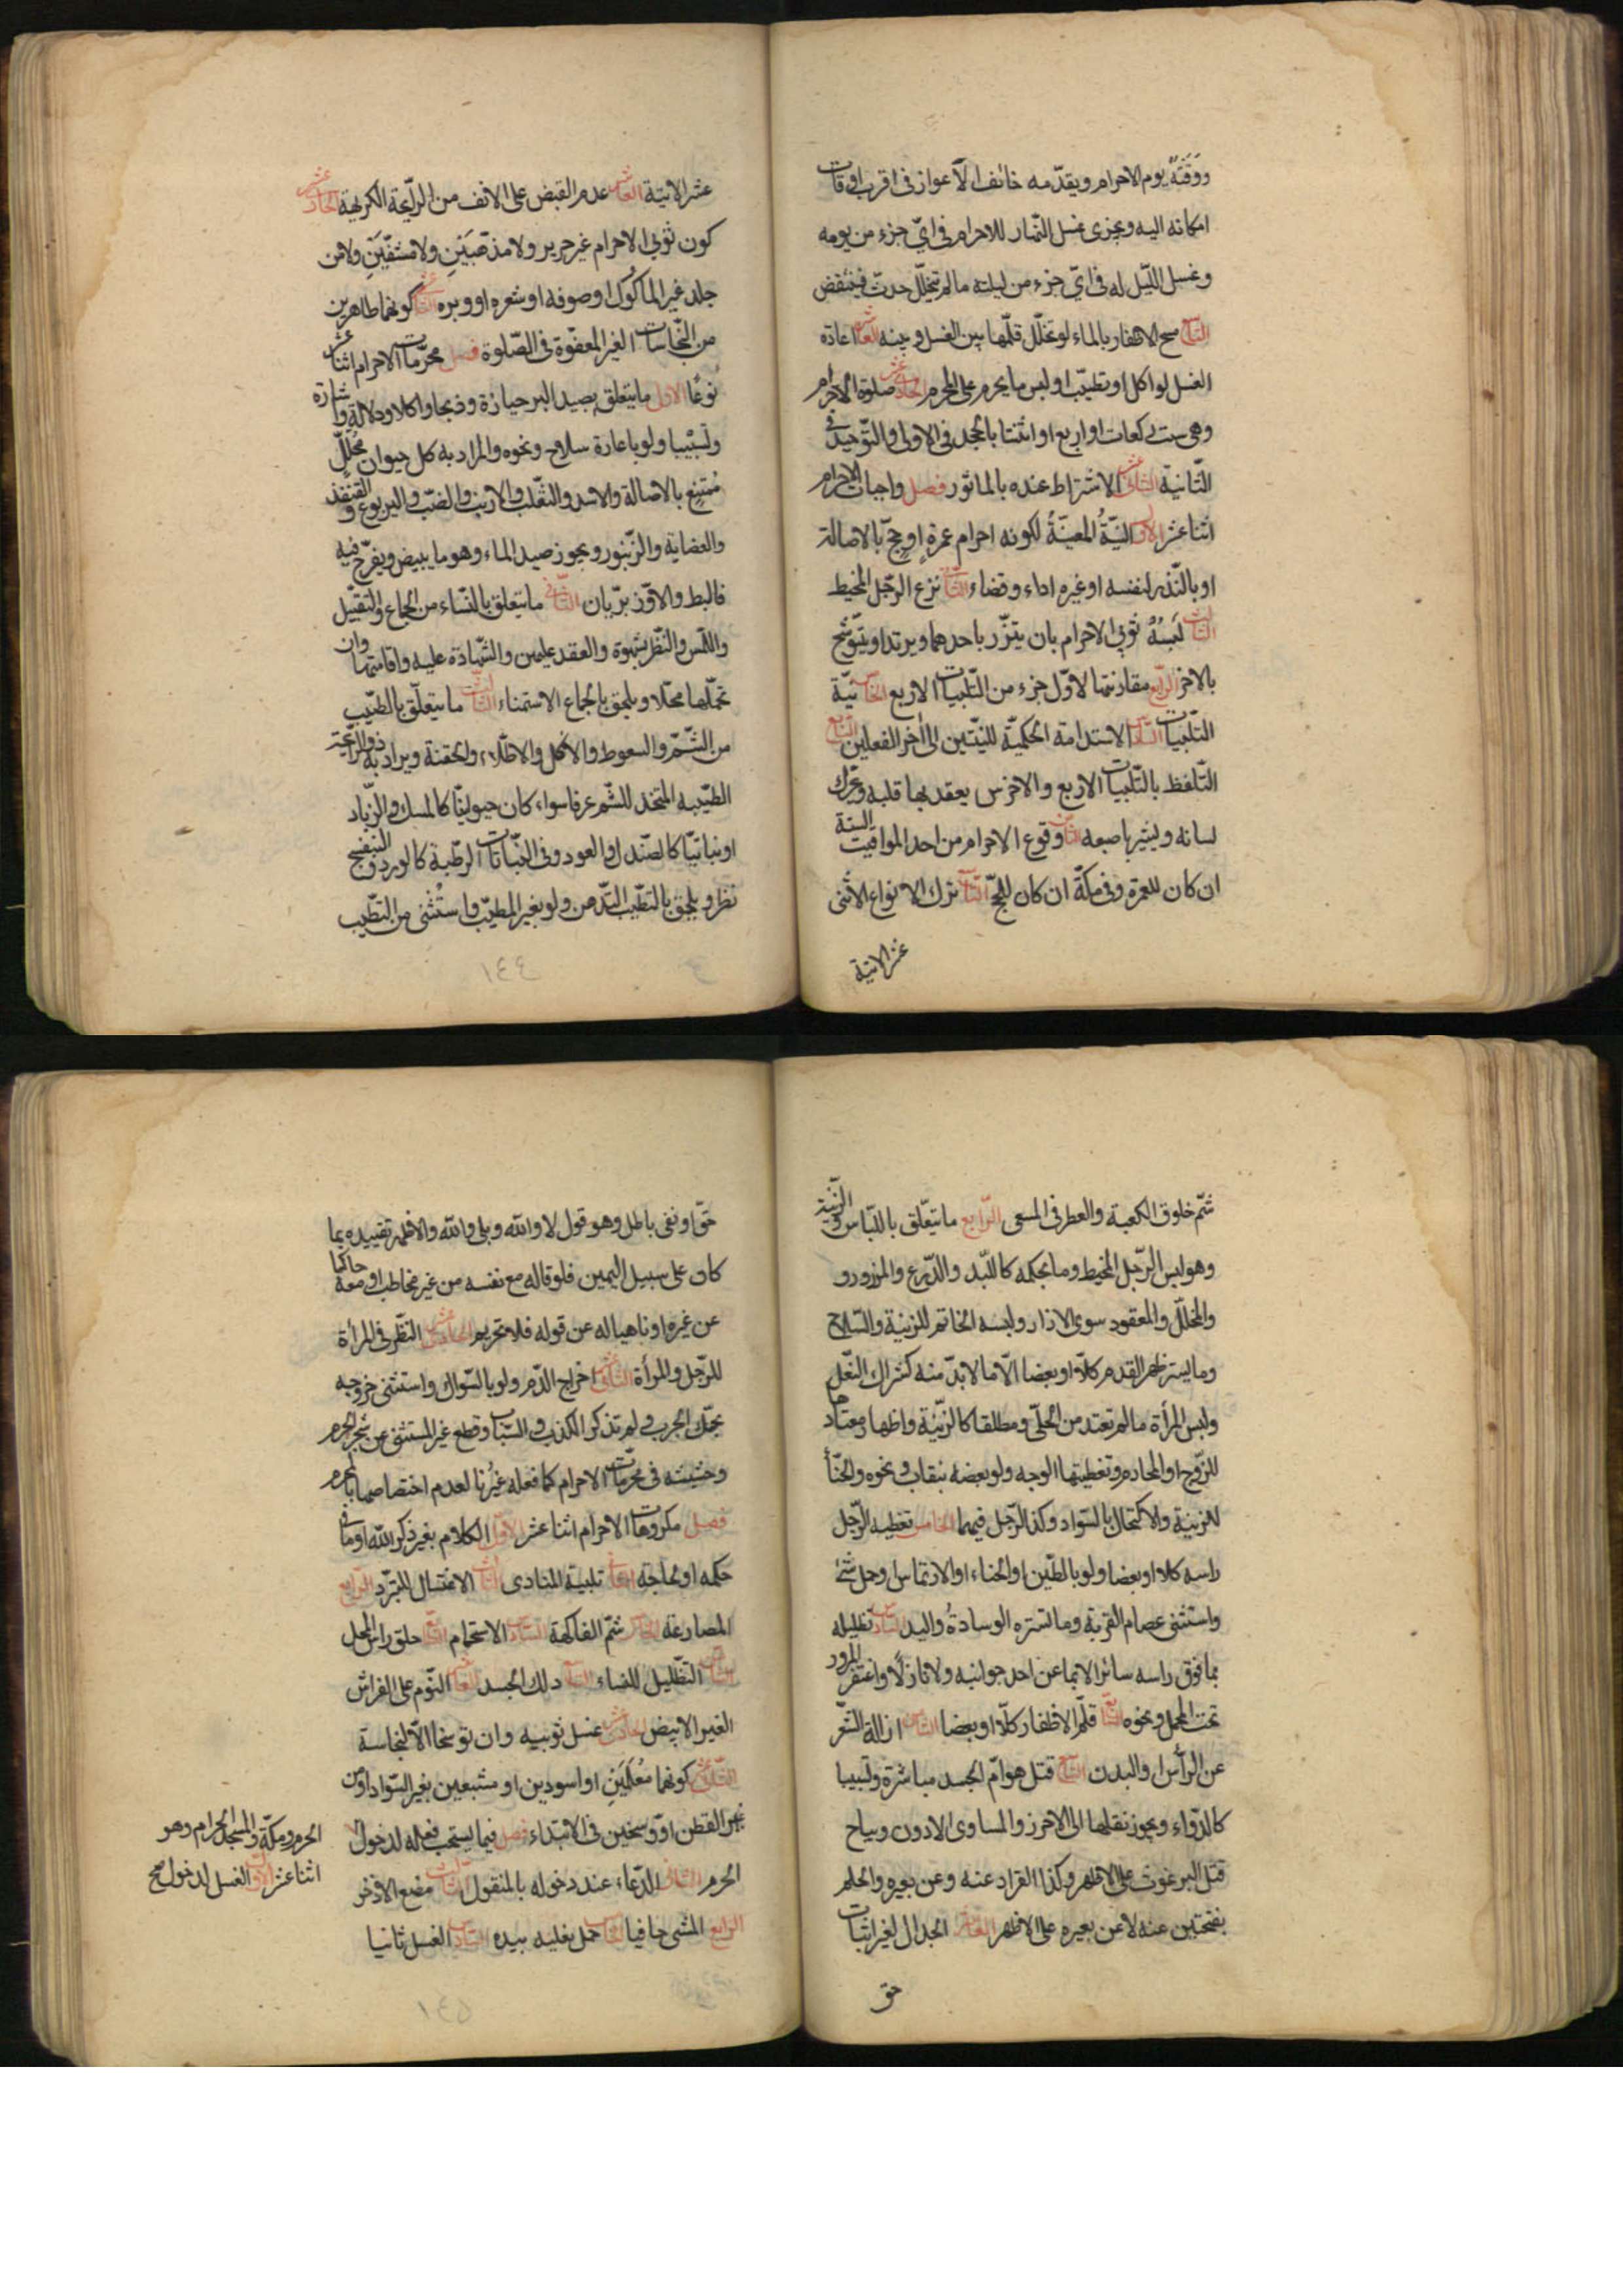 ووقته يوم الاحرام ويقدّمه خائف الاعواز فى اقرب اوقات
امكانه اليه ويجزى غسل النّهار للاحرام فى اىّ جزء من يومه
وغسل اللّيل له فى اىّ جزء من ليلته ما لم يتخلّل حدث فينتقض
التاسع مسح الاظفار بالماء لو تخلّل قلّمها بين الغسل وبينه العاشر اعادة
الغسل لو اكل او تطيّب او لبس ما يحرم على المحرم الحادى عشر صلوة الاحرام
وهى ست ركعات او اربع او اثنتا بالجحد فى الاولى والتّوحيد فى
الثّانية الثانى عشر الاشتراط عنده بالماثور فصل واجبات الاحرام
اثنا عشر الاول النيّةُ المعيّنةُ لكونه احرام عمرةٍ او حجّ بالاصالة
او بالنّذر لنفسه او غيره اداء وقضاء الثّانى نزع الرّجل المخيط
الثالث لبسهُ ثوبى الاحرام بان يتّزر باحدهما ويرتدا ويتّوشّح
بالاخر الرّابع مقارنتها لاوّل جزء من التّلبيات الاربع الخامس نيّة
التّلبيات السادس الاستدامة الحكميّة للنيّتين الى اٰخر الفعلين السّابع
التّلفظ بالتّلبيات الاربع والاخرس يعقد بها قلبه ويحرّك
لسانه ويشير باصبعه الثّامن وقوع الاحرام من احد المواقيت الستة
ان كان للعمرة وفى مكّة ان كان للحجّ التّاسع ترك الانواع الاثنى
عشر الاتية
عشر الاتية العاشر عدم القبض على الانف من الرّايحة الكريهة الحادى عشر
كون ثوبى الاحرام غير حرير ولا مذهّبَيْنِ ولا مشفّينِ ولا من
جلد غير الماكُول او صوفه او شعره او وبره الثانى عشر كونهما طاهرين
من النّجاسات الغير المعفوّة فى الصّلوة فصل محرّمات الاحرام اثنا عشر
نوعًا الاول ما يتعلق بصيد البر حيازة وذبحا واكلا ودلالة واشارة
وتسبّبا ولو باعارة سلاح ونحوه والمراد به كل حيوان محلّل
مُمتنِع بالاصالة والاسد والثّعلب والارنب والضبّ واليربوع والقنفذ
والعضاية والزّنبور ويجوز صيد الماء وهو ما يبيض ويفرّخ فيه
فالبط والاوّز برّيان الثّانى ما يتعلق بالنّساء من الجماع والتقبيل
واللّمس والنّظر بشهوة والعقد عليهن والشّهادة عليه واقامتها وان
تحمّلها محلّا ويلحق بالجماع الاستمناء الثّالث ما يتعلّق بالطيّب
من الشّمّ والسعوط والاكل والاطّلاء والحقنة ويراد به ذو الرّايحة
الطيّبه المتّخذ للشّم عرفا سواء كان حيوانيّا كالمسك والزّباد
او نباتيّا كالصّندل والعود وفى النّباتات الرطبة كالورد والبنفسج
نظر ويلحق بالتطيّب التّدهن ولو بغير المطيّب واستُثنى من التطيّب
١٤٤
شمّ خلوق الكعبة والعطر فى المسعى الرّابع ما يتعّلق باللّباس والزّينة
وهو لبس الرّجل المخيط وما بحكمه كاللّبد والدّرع والمزرور
والمخلّل والمعقود سوى الازار ولبسه الخاتم للزينة والسّلاح
وما يستر ظهر القدم كلّا او بعضا الّا ما لا بدّ منه كشراك النّعل
ولبس المراة ما لم تعتد من الحلّى ومطلقا كالزّينة واظهار معتادها
للزّوج او المحارم وتغطيتها الوجه ولو بعضه بنقاب ونحوه والحنّاء
للزينة والاكتحال بالسّواد وكذا الرّجل فيهما الخامس تغطية الرّجل
راسه كلا او بعضا ولو بالطّين او الحناء او الارتماس او حمل شئ
واستثنى عصام القربة وما تستره الوسادةُ واليد السّادس تظليله
بما فوق راسه سائرا لا بما عن احد جوانبه ولا نازلًا واغتفر المرور
تحت المحمل ونحوه السّابع قلّم الاظفار كلّا او بعضا الثّامن ازالة الشعّر
عن الرأس والبدن التّاسع قتل هوامّ الجسد مباشرة وتسبيبا
كالدّواء ويجوز نقلها الى الاحرز والمساوى لا الادون ويباح
قتل البرغوث على الاظهر وكذا القراد عنه وعن بعيره والحلم
بفتحتين عنه لا عن بعيره على الاظهر العاشر الجدال لغير اثبات
حق
حقّ او نفى باطل وهو قول لا والله وبلى والله والاظهر تقييده بما
كان على سبيل اليمين فلو قاله مع نفسه من غير مخاطب او معه حاكيا
عن غيره او ناهيا له عن قوله فلا تحريم الحادى عشر النّظر فى المرأة
للرّجل والمرأة الثّانى عشر اخراج الدّم ولو بالسّواك واستثنى خروجه
بحكّ الجرب ولم تذكر الكذب والسّباب وقطع غير المستثنى من شجر الحرم
وحشيشه فى محرّمات الاحرام كما فعله غيرُنا لعدم اختصاصها بالمحرم
فصل مكروهات الاحرام اثنا عشر الاوّل الكلام بغير ذكر الله او ما فى
حكمه او لحاجة الثانى تلبية المنادى الثالث الاغتسال للتبرّد الرّابع
المصارعة الخامس شمّ الفاكهة السّادس الاستحمام السّابع حلق راس المحل
الثّامن التّظليل للنساء التّاسع دلك الجسد العاشر النّوم على الفراش
الغير الابيض الحادى عشر غسل ثوبيه وان توسّخا الّا لنجاسة
الثّانى عشر كونهما مُعْلَمَيْنِ او اسودين او مشبعين بغير السّواد او من
غير القطن او وسخين فى الابتداء فصل فيما يستحب فعله لدخول
الحرم ومكّة والمسجد الحرام وهو
اثنا عشر الاوّل الغسل لدخول مح
الحرم الثّانى الدّعاء عند دخوله بالمنقول الثّالث مضغ الاذخر
الرّابع المشى حافيا الخامس حمل نعليه بيده السّادس الغسل ثانيا
١٤٥